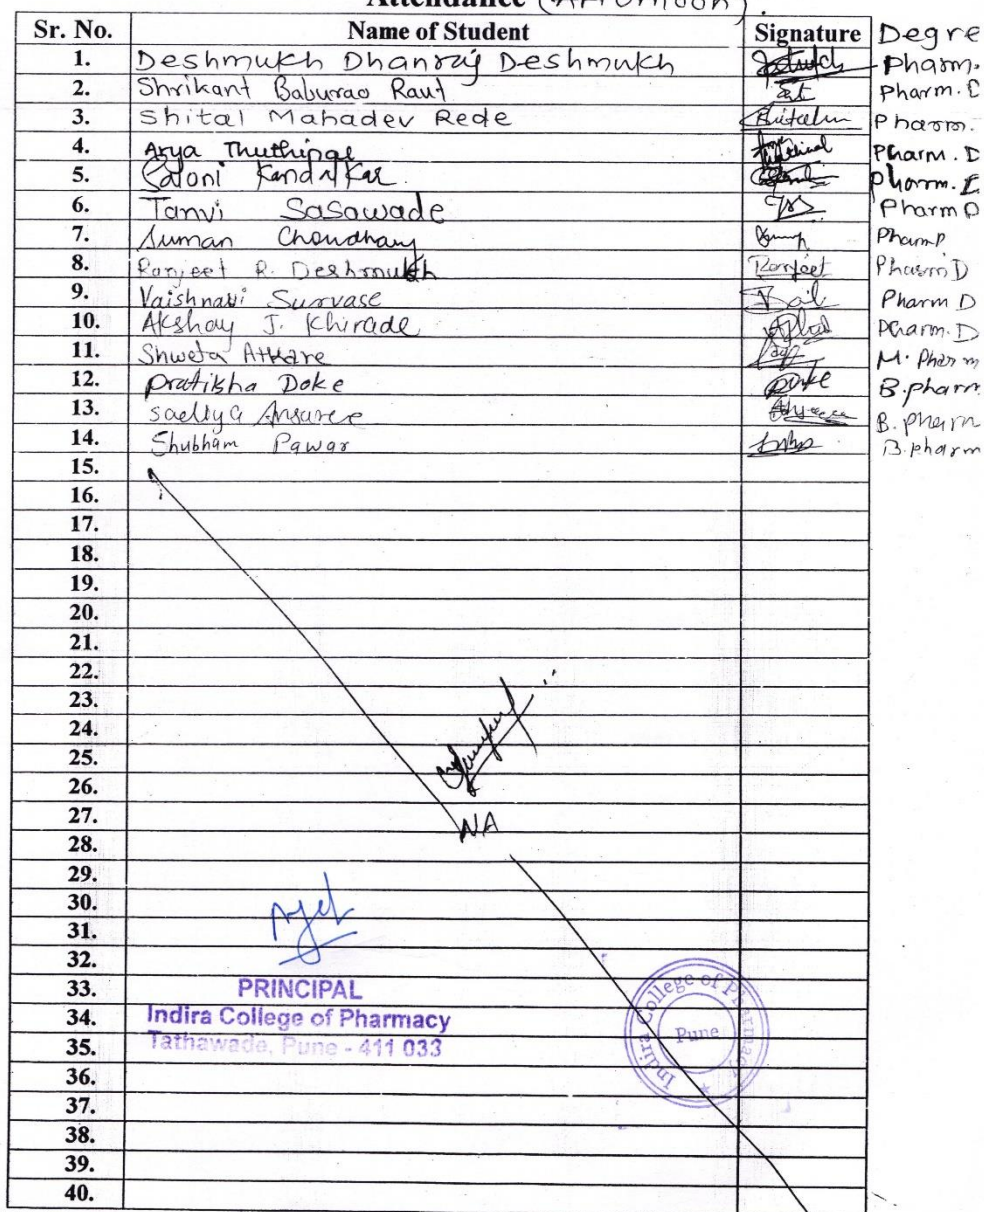 Attendance (Afternoon).
Sr. No. Name of Student Signature Degre
1. Deshmukh Dhanraj Deshmukh Pharm.
2. Shrikant Baburao Raut Pharm. D
3. Shital Mahadev Rede Pharm.
4. Arya Thuthipal Pharm. D
5. Saloni Kandalkar Pharm. D
6. Tanvi Sasawade Pharm D
7. Suman Choudhary Pharm D
8. Ranjeet R. Deshmukh Ranjeet Pharm D
9. Vaishnavi Survase Pharm D
10. Akshay J. Khirade Pharm. D
11. Shweta Atkare M. Pharm
12. Pratiksha Doke Doke B. pharm
13. Ansaree B. pharm
14. Shubham Pawar B. pharm
15.
16.
17.
18.
19.
20.
21.
22.
23.
24.
25.
26.
27. NA
28.
29.
30.
31.
32.
33. PRINCIPAL
34. Indira College of Pharmacy
35. Tathawade, Pune - 411 033
Indira College of Pharmacy
Pune
36.
37.
38.
39.
40.